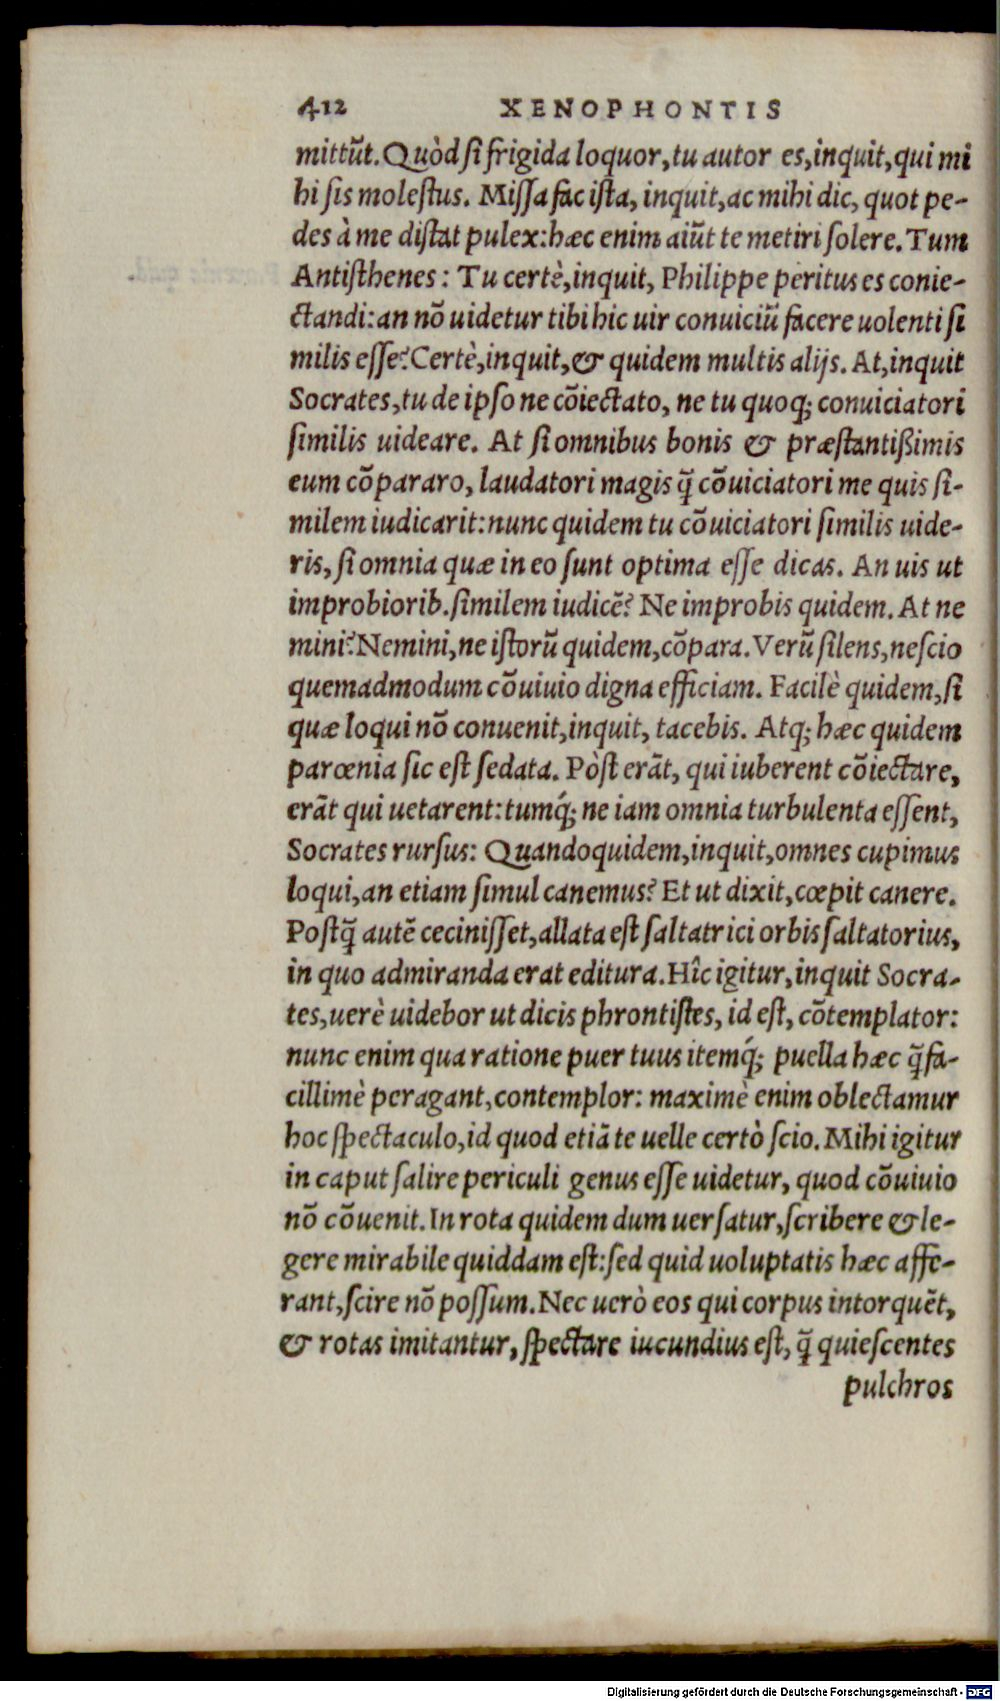 412 XENOPHONTIS
mittūt. Quòd ſi frigida loquor, tu autor es, inquit, qui mi
hi ſis moleſtus. Miſſa fac iſta, inquit, ac mihi dic, quot pe-
des à me diſtat pulex: hæc enim aiūt te metiri ſolere. Tum
Antiſthenes: Tu certè, inquit, Philippe peritus es conie-
ctandi: an nō uidetur tibi hic uir conuiciū facere uolenti ſi
milis eſſe? Certè, inquit, & quidem multis alijs. At, inquit
Socrates, tu de ipſo ne cōiectato, ne tu quoq; conuiciatori
ſimilis uideare. At ſi omnibus bonis & præſtantißimis
eum cōpararo, laudatori magis q̃ cōuiciatori me quis ſi-
milem iudicarit: nunc quidem tu cōuiciatori ſimilis uide-
ris, ſi omnia quæ in eo ſunt optima eſſe dicas. An uis ut
improbiorib. ſimilem iudicē? Ne improbis quidem. At ne
mini? Nemini, ne iſtorū quidem, cōpara. Verū ſilens, neſcio
quemadmodum cōuiuio digna efficiam. Facilè quidem, ſi
quæ loqui nō conuenit, inquit, tacebis. Atq; hæc quidem
parœnia ſic eſt ſedata. Pòſt erāt, qui iuberent cōiectare,
erāt qui uetarent: tumq́; ne iam omnia turbulenta eſſent,
Socrates rurſus: Quandoquidem, inquit, omnes cupimus
loqui, an etiam ſimul canemus? Et ut dixit, cœpit canere.
Poſtq̃ autē ceciniſſet, allata eſt ſaltatrici orbis ſaltatorius,
in quo admiranda erat editura. Hîc igitur, inquit Socra-
tes, uerè uidebor ut dicis phrontiſtes, id eſt, cōtemplator:
nunc enim qua ratione puer tuus itemq́; puella hæc q̃ fa-
cillimè peragant, contemplor: maximè enim oblectamur
hoc ſpectaculo, id quod etiā te uelle certò ſcio. Mihi igitur
in caput ſalire periculi genus eſſe uidetur, quod cōuiuio
nō cōuenit. In rota quidem dum uerſatur, ſcribere & le-
gere mirabile quiddam eſt: ſed quid uoluptatis hæc affe-
rant, ſcire nō poſſum. Nec uerò eos qui corpus intorquēt,
& rotas imitantur, ſpectare iucundius eſt, q̃ quieſcentes
pulchros
Digitalisierung gefördert durch die Deutsche Forschungsgemeinschaft - DFG